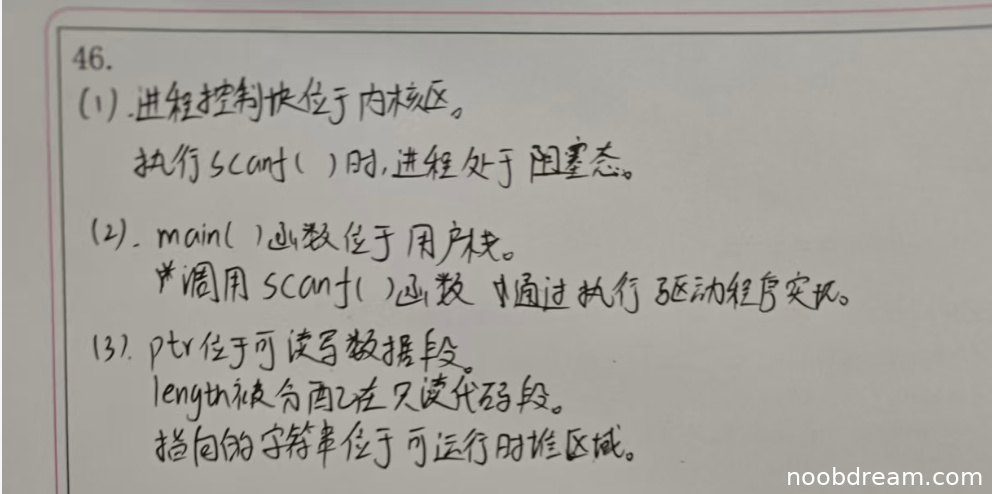 46.
(1). 进程控制块位于内核区。
执行scanf( )时,进程处于阻塞态。
(2). main( )函数位于用户栈。
调用scanf( )函数 通过执行驱动程序实现。
(3). ptr位于可读写数据段。
length被分配在只读代码段。
指向的字符串位于可运行时堆区域。
noobdream.com